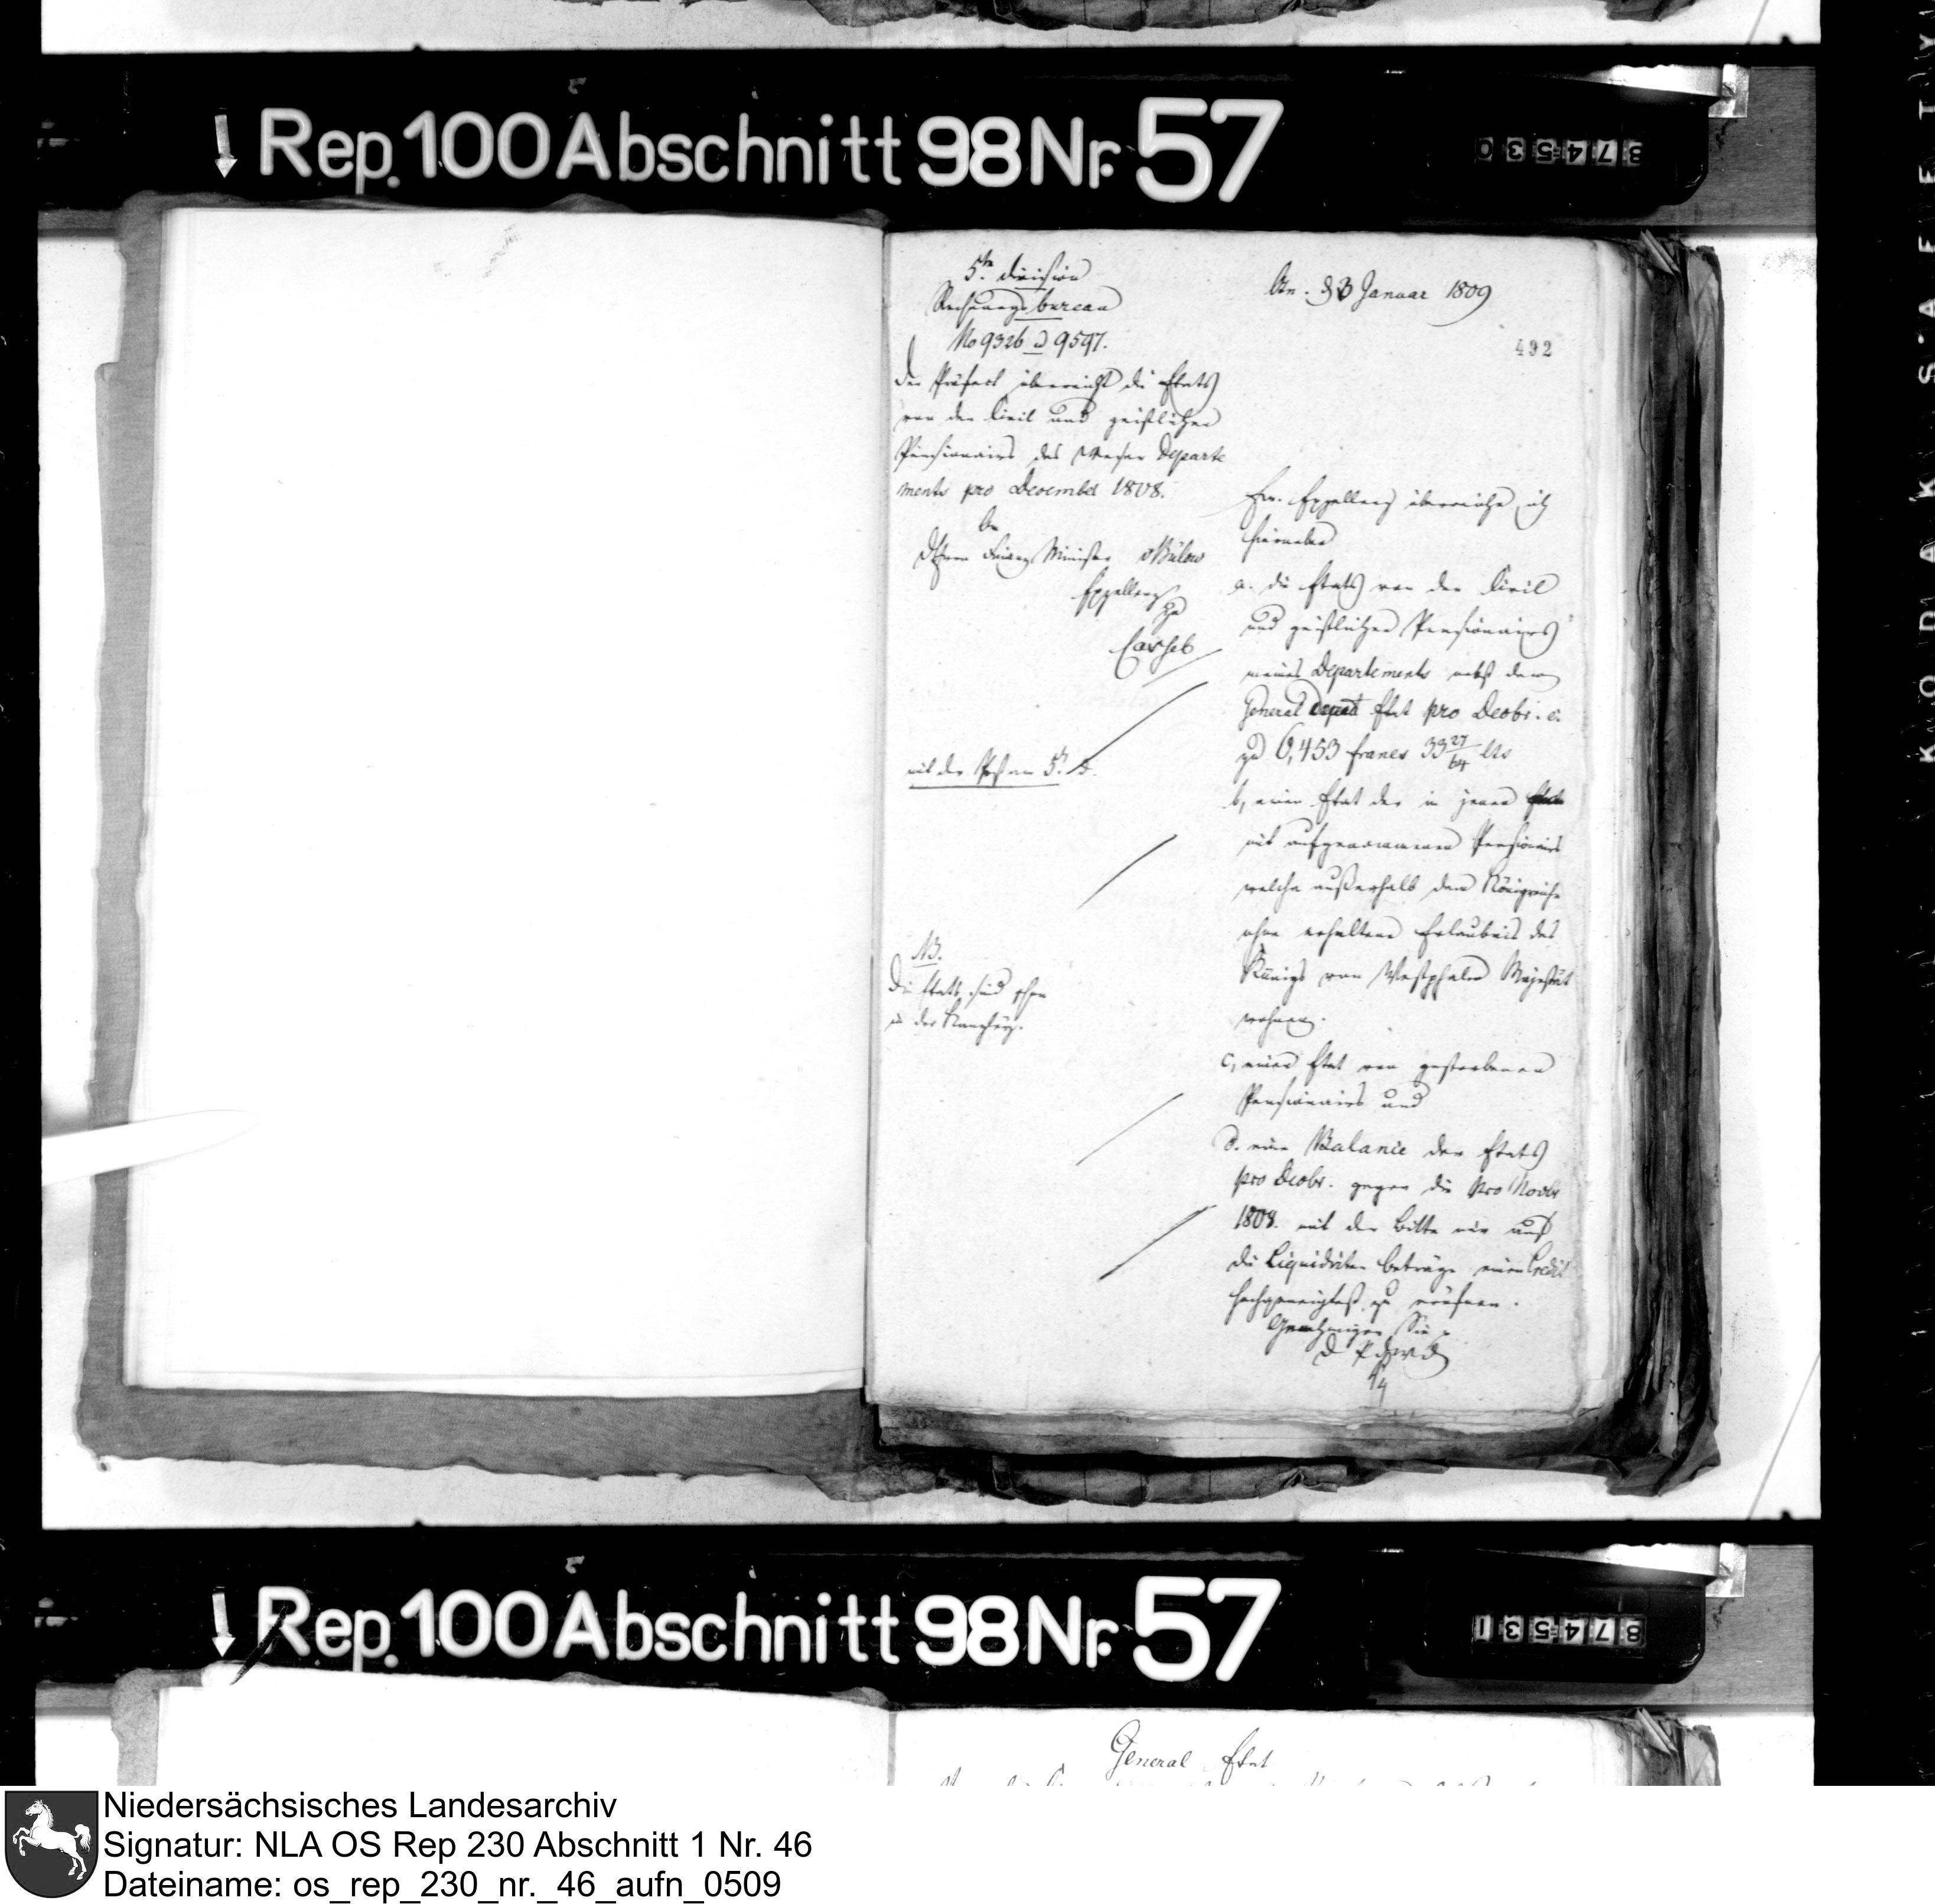 Rep. 100 Abschnitt 98 Nr. 57
874530
5te Division
Rechnungs bureau
No 9326 & 9597.
Der Präfect überreicht die Etats
von den Civil und geistlichen
Pensionairs des Weser Departe
ments pro December 1808.
An
Herrn Finanz Minister v Bülow
Exzellenz
zu
Cassel
mit der Post am 5t.
NB.
Die Etats sind schon
in der Kanzley.
Januar 1809
492
Ew. Exzellenz überreiche ich
hierneben
a. die Etats von den Civil
und geistlichen Pensionairs
meines Departements nebst dem
General Etat pro Decbr. c.
zu 6,453 francs 33 27/64 Cts
b, einen Etat der in jenen
mit aufgenommenen Pensionairs
welche außerhalb dem Königreiche
ohne erhaltene Erlaubnis des
Königs von Westphalen Majestät
wohnen.
c, einen Etat von gestorbenen
Pensionairs und
d. eine Balance der Etats
pro Decbr. gegen die pro Novbr
1808. mit der Bitte mir auf
die Liquidirten beträge einen Credit
hochgeneigtest zu eröfnen.
Genehmigen Sie
D P d W D
Rep. 100 Abschnitt 98 Nr. 57
874531
General Etat
Niedersächsisches Landesarchiv
Signatur: NLA OS Rep 230 Abschnitt 1 Nr. 46
Dateiname: os_rep_230_nr._46_aufn_0509
KODAK SAFETY